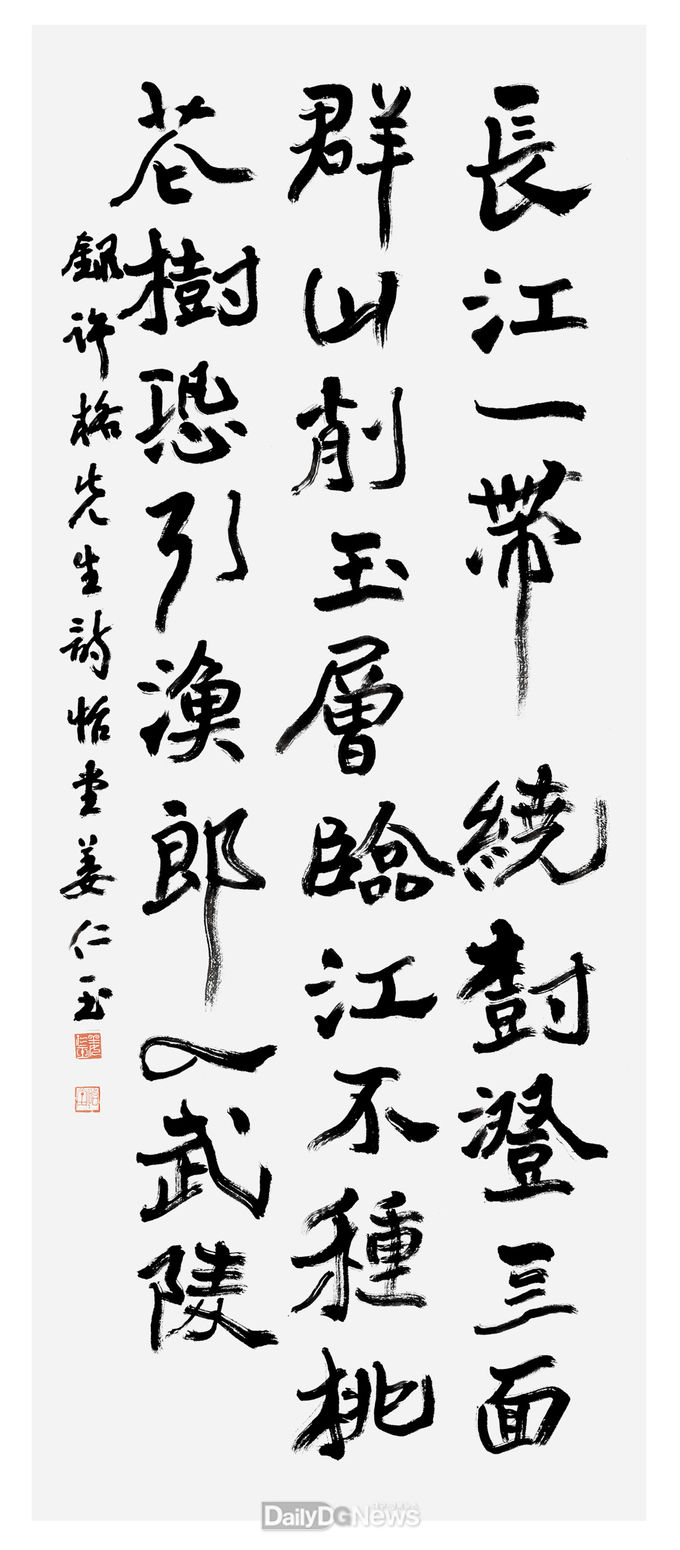 長江一帶繞尌澄三面
群山削玉層臨江不種桃
花樹恐引漁郎入武陵
錄許格先生詩怡堂姜仁玉
DailyDGNews